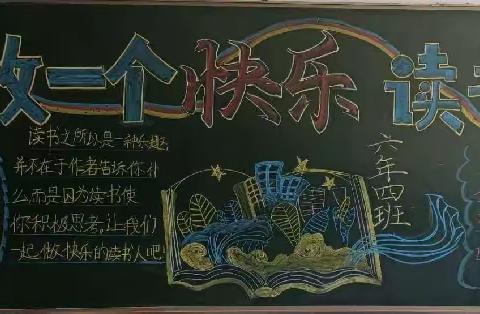 做一个快乐读书
读书之所以是一种乐趣
并不在于作者告诉你什
么,而是因为读书使
你积极思考,让我们
一起做快乐的读书人吧!
六年四班